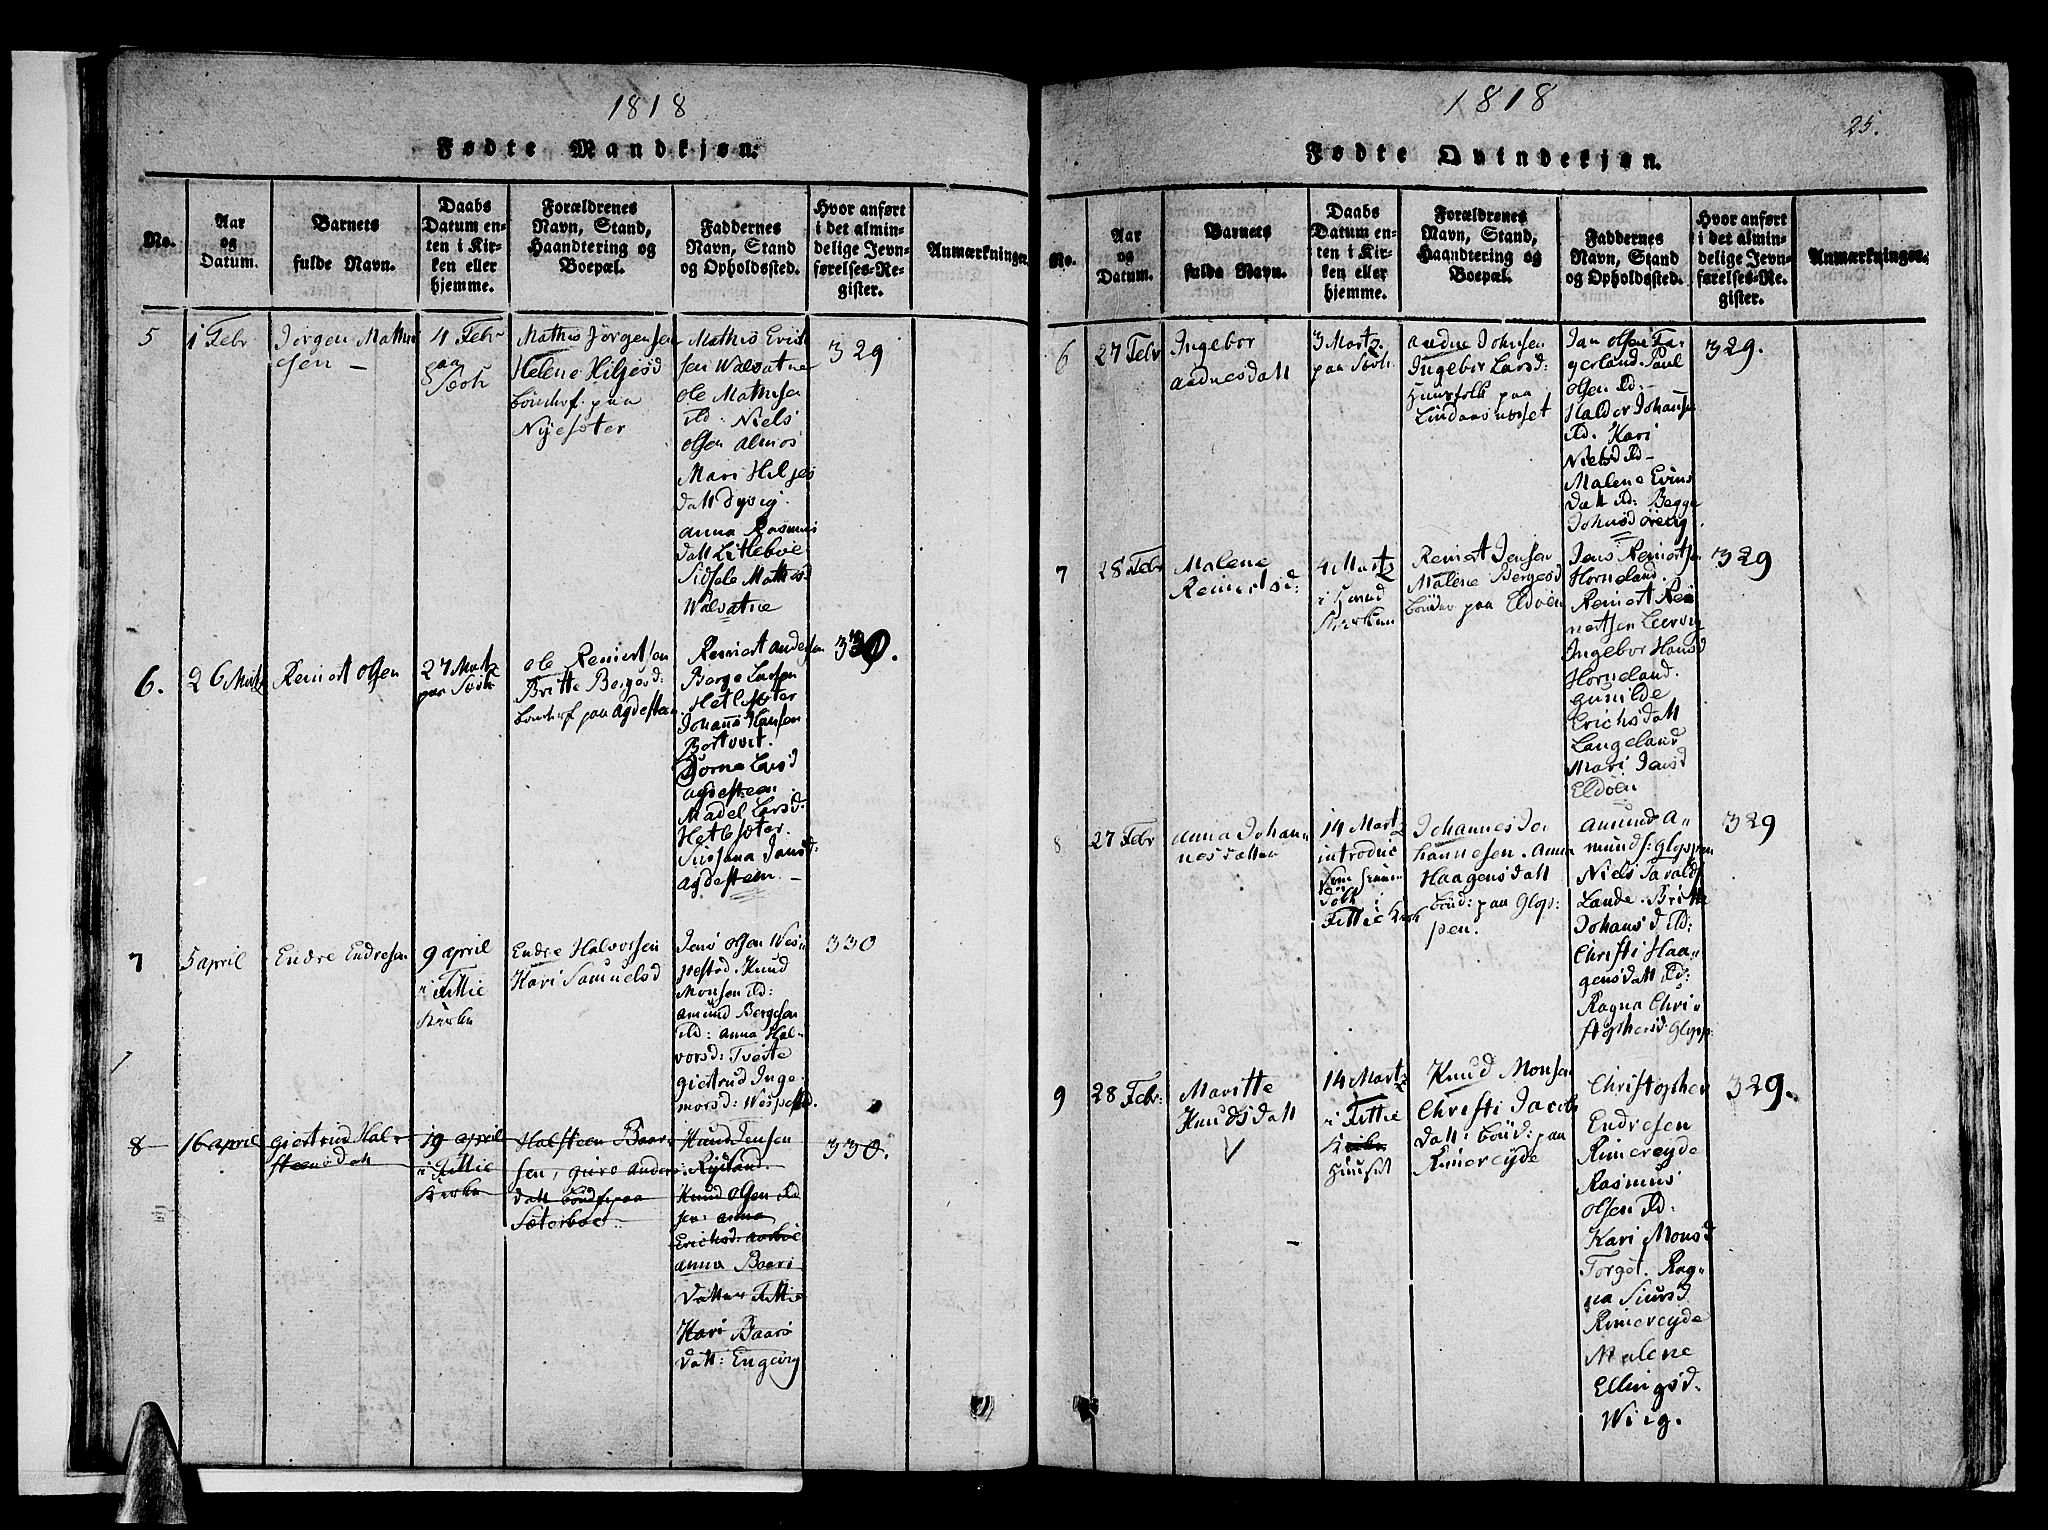 1818
Fødte Mandkjøn.
No.
Aar
og
Datum.
Barnets
fulde Navn.
Daabs
Datum en-
ten i Kir-
ken eller
hjemme.
Forældrenes
Navn, Stand,
Haandtering og
Boepæl.
Faddernes
Navn, Stand
og Opholdssted.
Hvor anført
i det almin-
delige Jevn-
førelses-Re-
gister.
Anmærkninger.
5
1 Febr
Jørgen Mathi
sen
4 Febr
paa
Mathis Jørgensen
Helene Hiljesd
bondef. paa
Nijesøter
Mathis Erich
sen Walvatne
ole Mathisen
ild: Niels
olsen almos
Mari Hiljes
datt dyvig.
anna Rasmus
datt Litleboe
Sidsele Mathisd
Walvatne
329
6.
26 Mrtz
Reinert olsen
27 Martz
paa
ole Reinertsen
Britte Bergesd:
bondef paa agdestein
Reinert andersen
Berge Larsen
Hetlesøter
Johans Hansen
Bortvet.
Larsd
agdestein
Madel Larsd:
Hetlesøter.
Sussana Jansd:
agdestein
330.
7
5 april
Endre Endresen
9 april
i Fittie
Kirke
Endre Halvorsen
Kari Samuelsd
Jens olsen Wes-
pestad. Knud
Monsen ild:
amund Bergesen
ild: anna Hal-
vorsd: Tveite
giertrud Inge-
morsd: Wespestad.
330
8
16 april
giertrud Hal-
steensdatt
19 april
i Fittie
Kirke
Halsteen Baar-
sen, guro anders-
datt bondf. paa
Søterboe
Knud Jensen
Rijsland.
Knud olsen ild
anna
Erichsd:
anna Baars
datter Fittie
Kari Baars
datt: Engevig
330.
1818
25.
Fødte Qvindekjøn.
No.
Aar
og
Datum.
Barnets
fulde Navn.
Daabs
Datum en-
ten i Kir-
ken eller
hjemme.
Forældrenes
Navn, Stand,
Haandtering og
Boepæl.
Faddernes
Navn, Stand
og Opholdssted.
Hvor anført
i det almin-
delige Jevn-
førelses-Re-
gister.
Anmærkninger.
6
27 Febr
Ingebor
adnesdatt
3 Martz
paa
adne Johnsen
Ingebor Larsd:
Huusfolk paa
Lindaasnæsset
Jan olsen Fa-
gerland. Paul
olsen ild:
Haldor Johansen
ild. Kari
Nielsd ild
Malene Evins
datt ild: Begge
329.
7
28 Febr
Malene
Reinertsd:
4 Martz
i
Kirken
Reinert Jensen
Malene Bergesd
bønder paa Eldøen
Jens Reinertsen
Horneland.
Reinert Rei
nertsen Leervig
Ingebor Hansd
Horneland.
gunilde
Erichsdatt
Langeland
Mari Jensd
Eldøen
329
8
27 Febr
anna Johan-
nesdatter
14 Martz
introduc
i
Fittie Kirk
Johannes Jo-
hannesen. Anna
Haagensdatt
bønd: paa Glyp-
pen.
amund a-
munds: glyppen
Niels
Lande. Britte
Johansd ild:
Christi Haa-
gensdatt ild:
Ragna Chri-
stophersd: glypp:
329
9
28 Febr:
Maritte
Knudsdatt
14 Martz
i Fittie
Kirke
Huuset
Knud Monsen
Christi Jacobs
datt: bønd: paa
Rimereijde
Christopher
Endresen
Rimereijde
Rasmus
olsen ild:
Kari Monsd
Ragna
Siursd
Rimereijde
Malene
Ellingsd.
Wiig.
329.